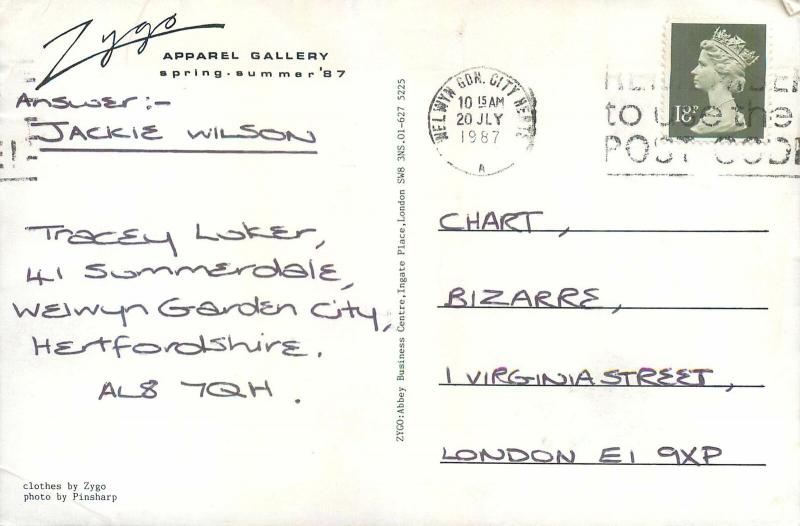 Zygo
APPAREL GALLERY
spring·summer '87
Answer:-
JACKIE WILSON
Tracey Luker,
41 Summerdale,
Welwyn Garden City,
Hertfordshire.
AL8 7QH.
clothes by Zygo
photo by Pinsharp
ZYGO:Abbey Business Centre,Ingate Place,London SW8 3NS.01-627 5225
WELWYN GDN. CITY HERTS
10 15 AM
20 JLY
1987
A
18P
to use the
POST CODE
CHART,
BIZARRE,
1 VIRGINIA STREET,
LONDON E1 9XP